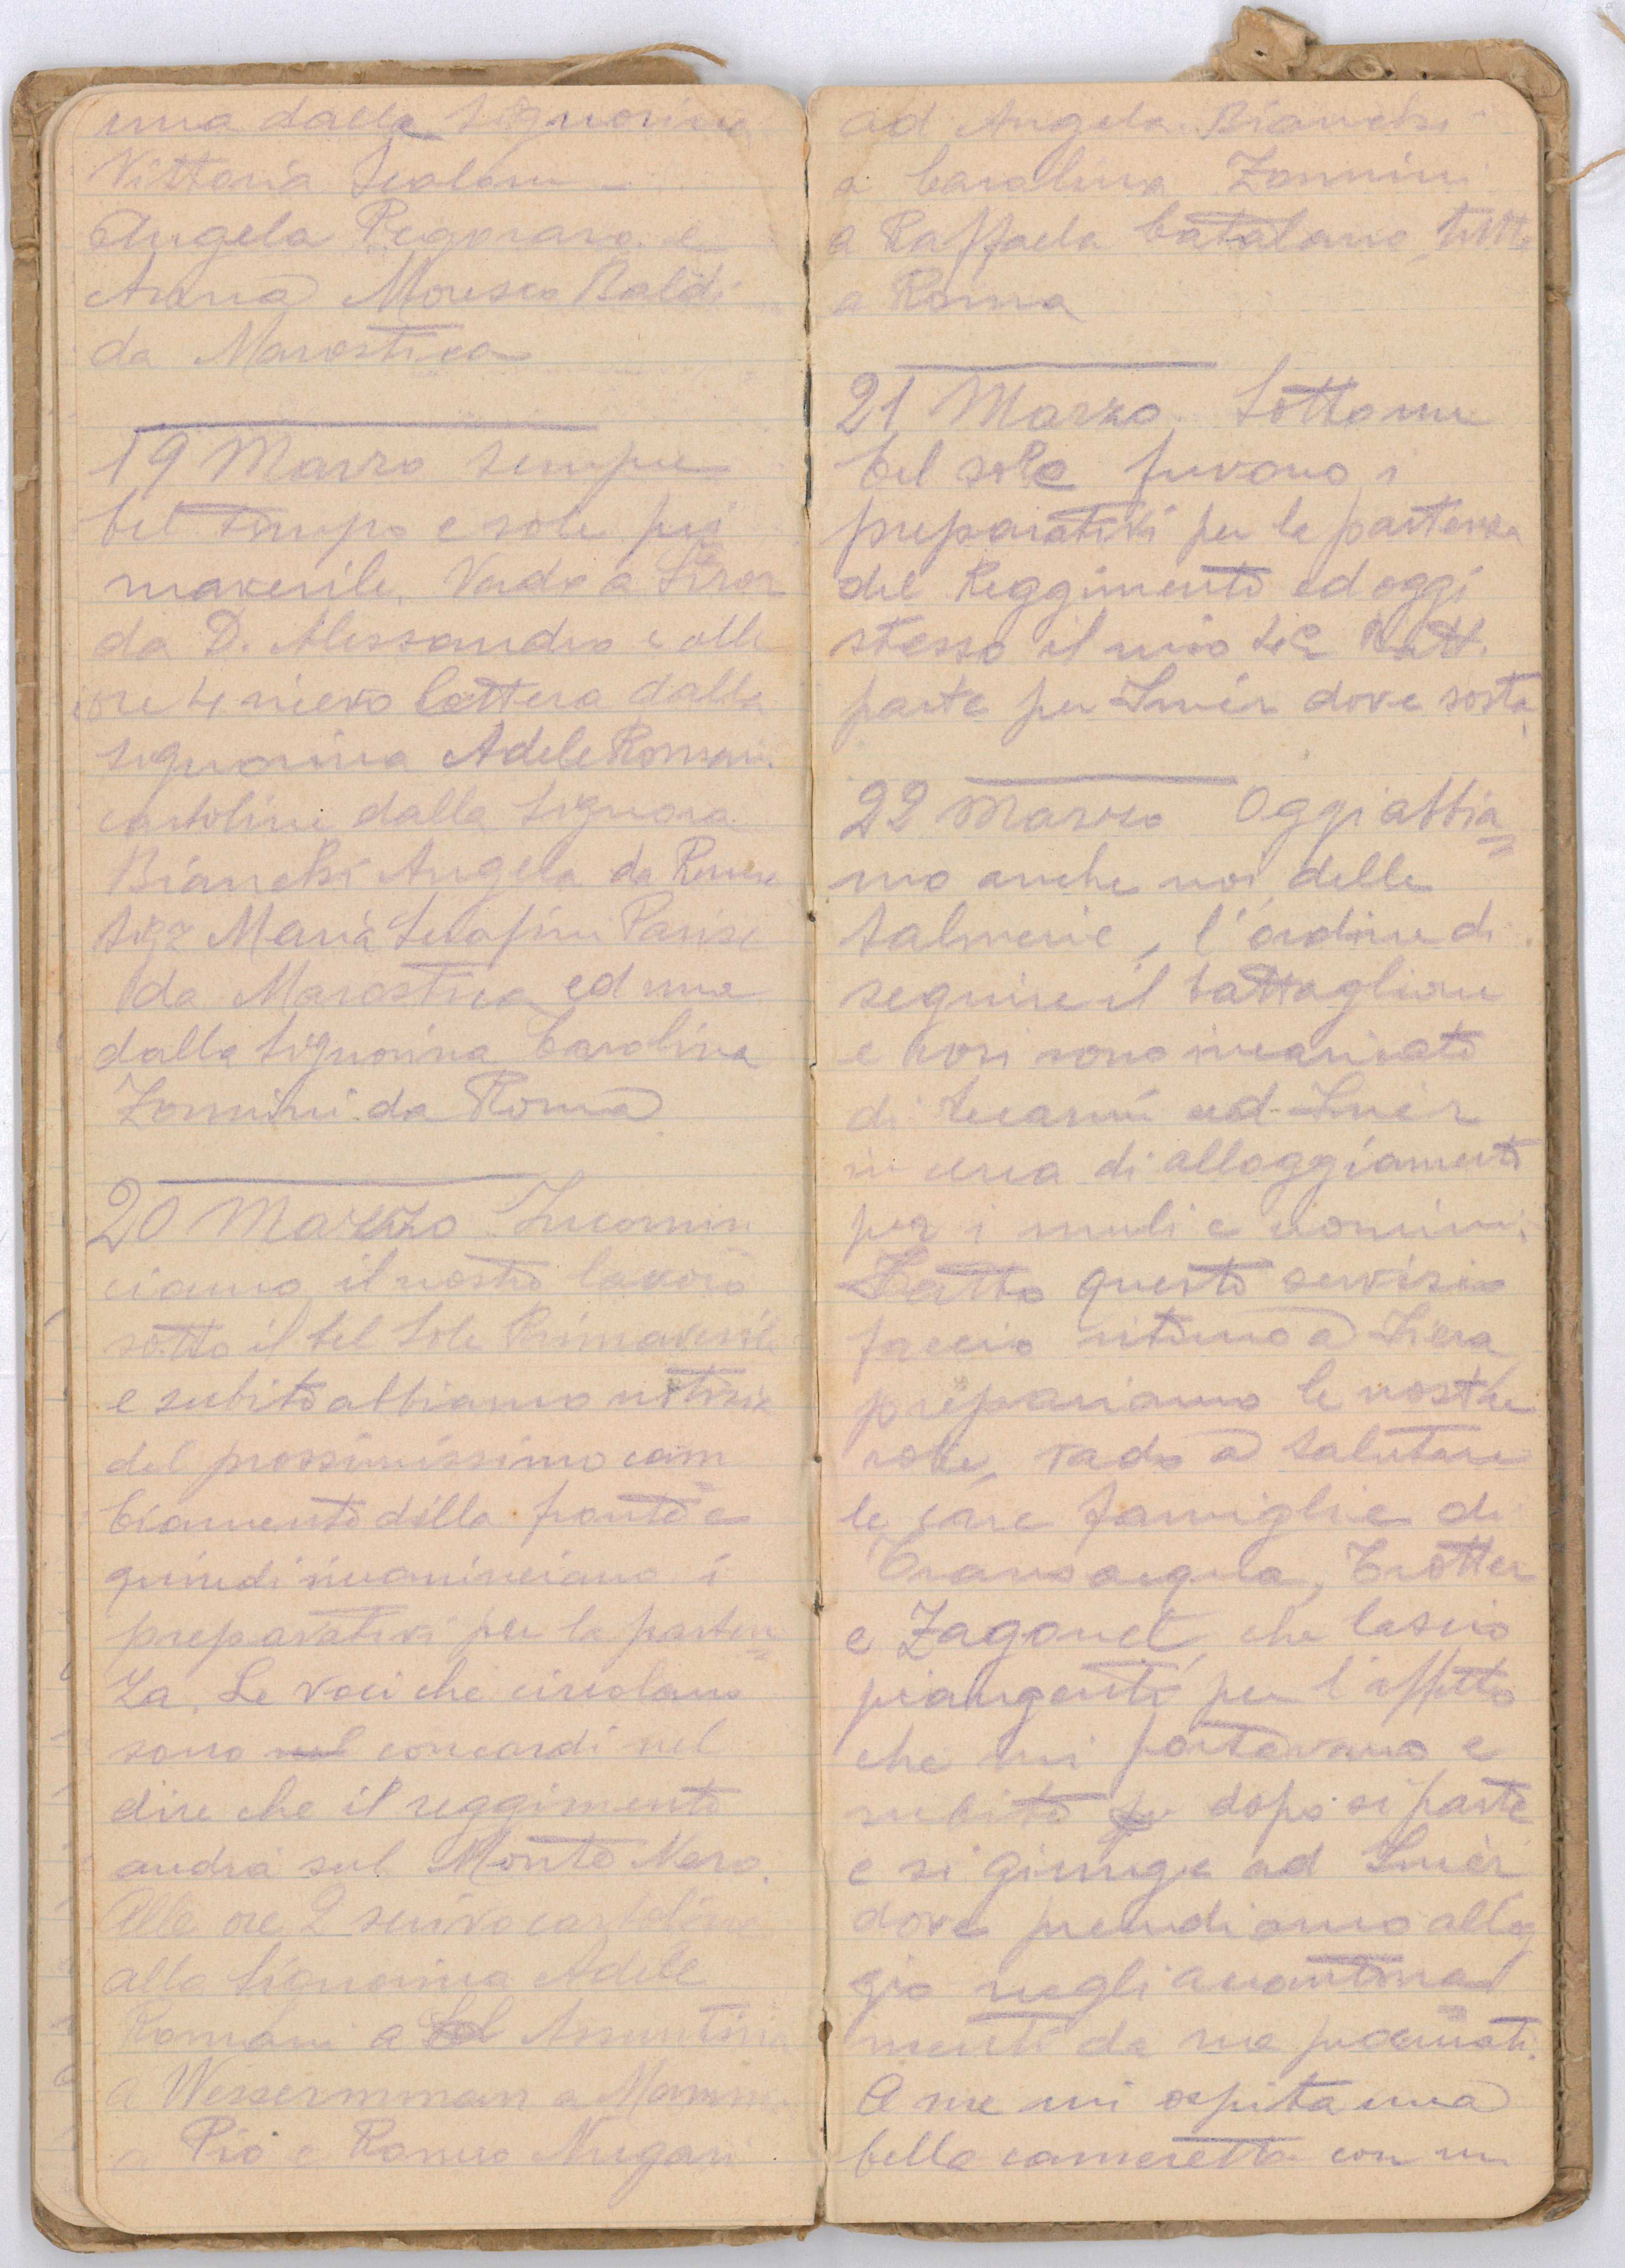 una dalla Signorina
Vittoria Scalom
Angela Pegoraro e
Anna Moresco Baldi
da Marostica
19 Marzo Sempre
bel tempo e sole pri
maverile. Vado a Siror
da D. Alessandro e alle
ore 4 ricevo lettera dalla
Signorina Adele Romani.
cartoline dalla Signora
Bianchi Angela da
Sigra Maria Serafini Parise
da Marostica ed una
dalla Signorina Carolina
Zonnini da Roma
20 Marzo Incomin
ciamo il nostro lavoro
sotto il bel Sole Primaverile
e subito abbiamo notizie
del prossimissimo cam
biamento della fronte e
quindi rincominciano i
preparativi per la parten=
za. Le voci che circolano
sono nel concordi nel
dire che il reggimento
andrà sul Monte Nero.
Alle ore 2 scrivo cartoline
alla Signorina Adele
Romani a Assuntina
a Wessermman a Mamma
a Pio e Romeo Nugari
ad Angela Bianchi
a Carolina Zonnini
a Raffaela Catalano tutte
a Roma
21 Marzo. Sotto un
bel sole furono i
preparativi per la partenza
del Reggimento ed oggi
stesso il mio 4º Batt.
parte per Imèr dove sosta
22 Marzo Oggi abbia=
mo anche noi delle
Salmerie, l'ordine di
seguire il battaglione
e così sono incaricato
di recarmi ad Imèr
in cerca di alloggiamenti
per i muli e uomini.
Fatto questo servizio
faccio ritorno a Fiera
prepariamo le nostre
robe, vado a salutare
le care famiglie di
Transacqua, Trotter
e Zagonel che lascio
piangenti per l'affetto
che mi portavano e
subito dopo si parte
e si giunge ad Imèr
dove prendiamo allog
gio negli accantona=
menti da me preparati.
A me mi ospita una
bella cameretta con un